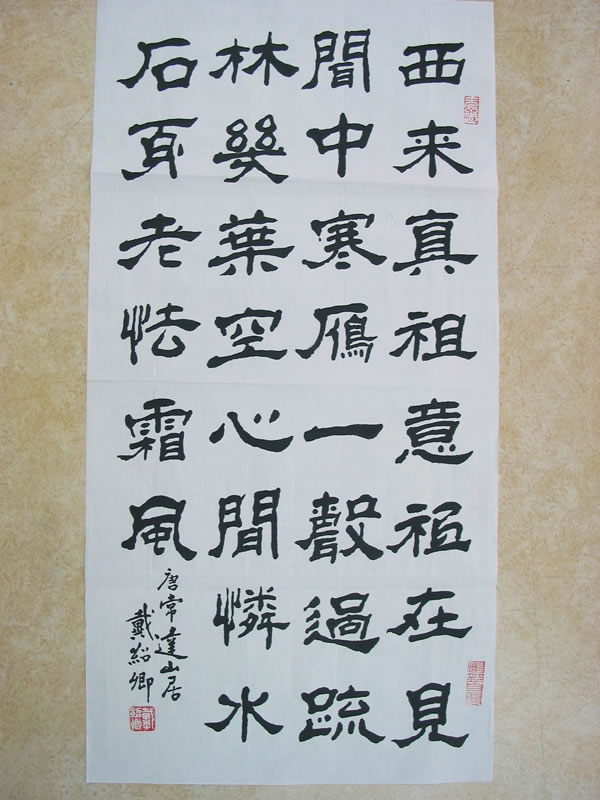 西来真祖意祗在見
聞中寒鴈一聲過疏
林幾葉空心閒憐水
石身老怯霜風
唐常達山居
戴紹卿